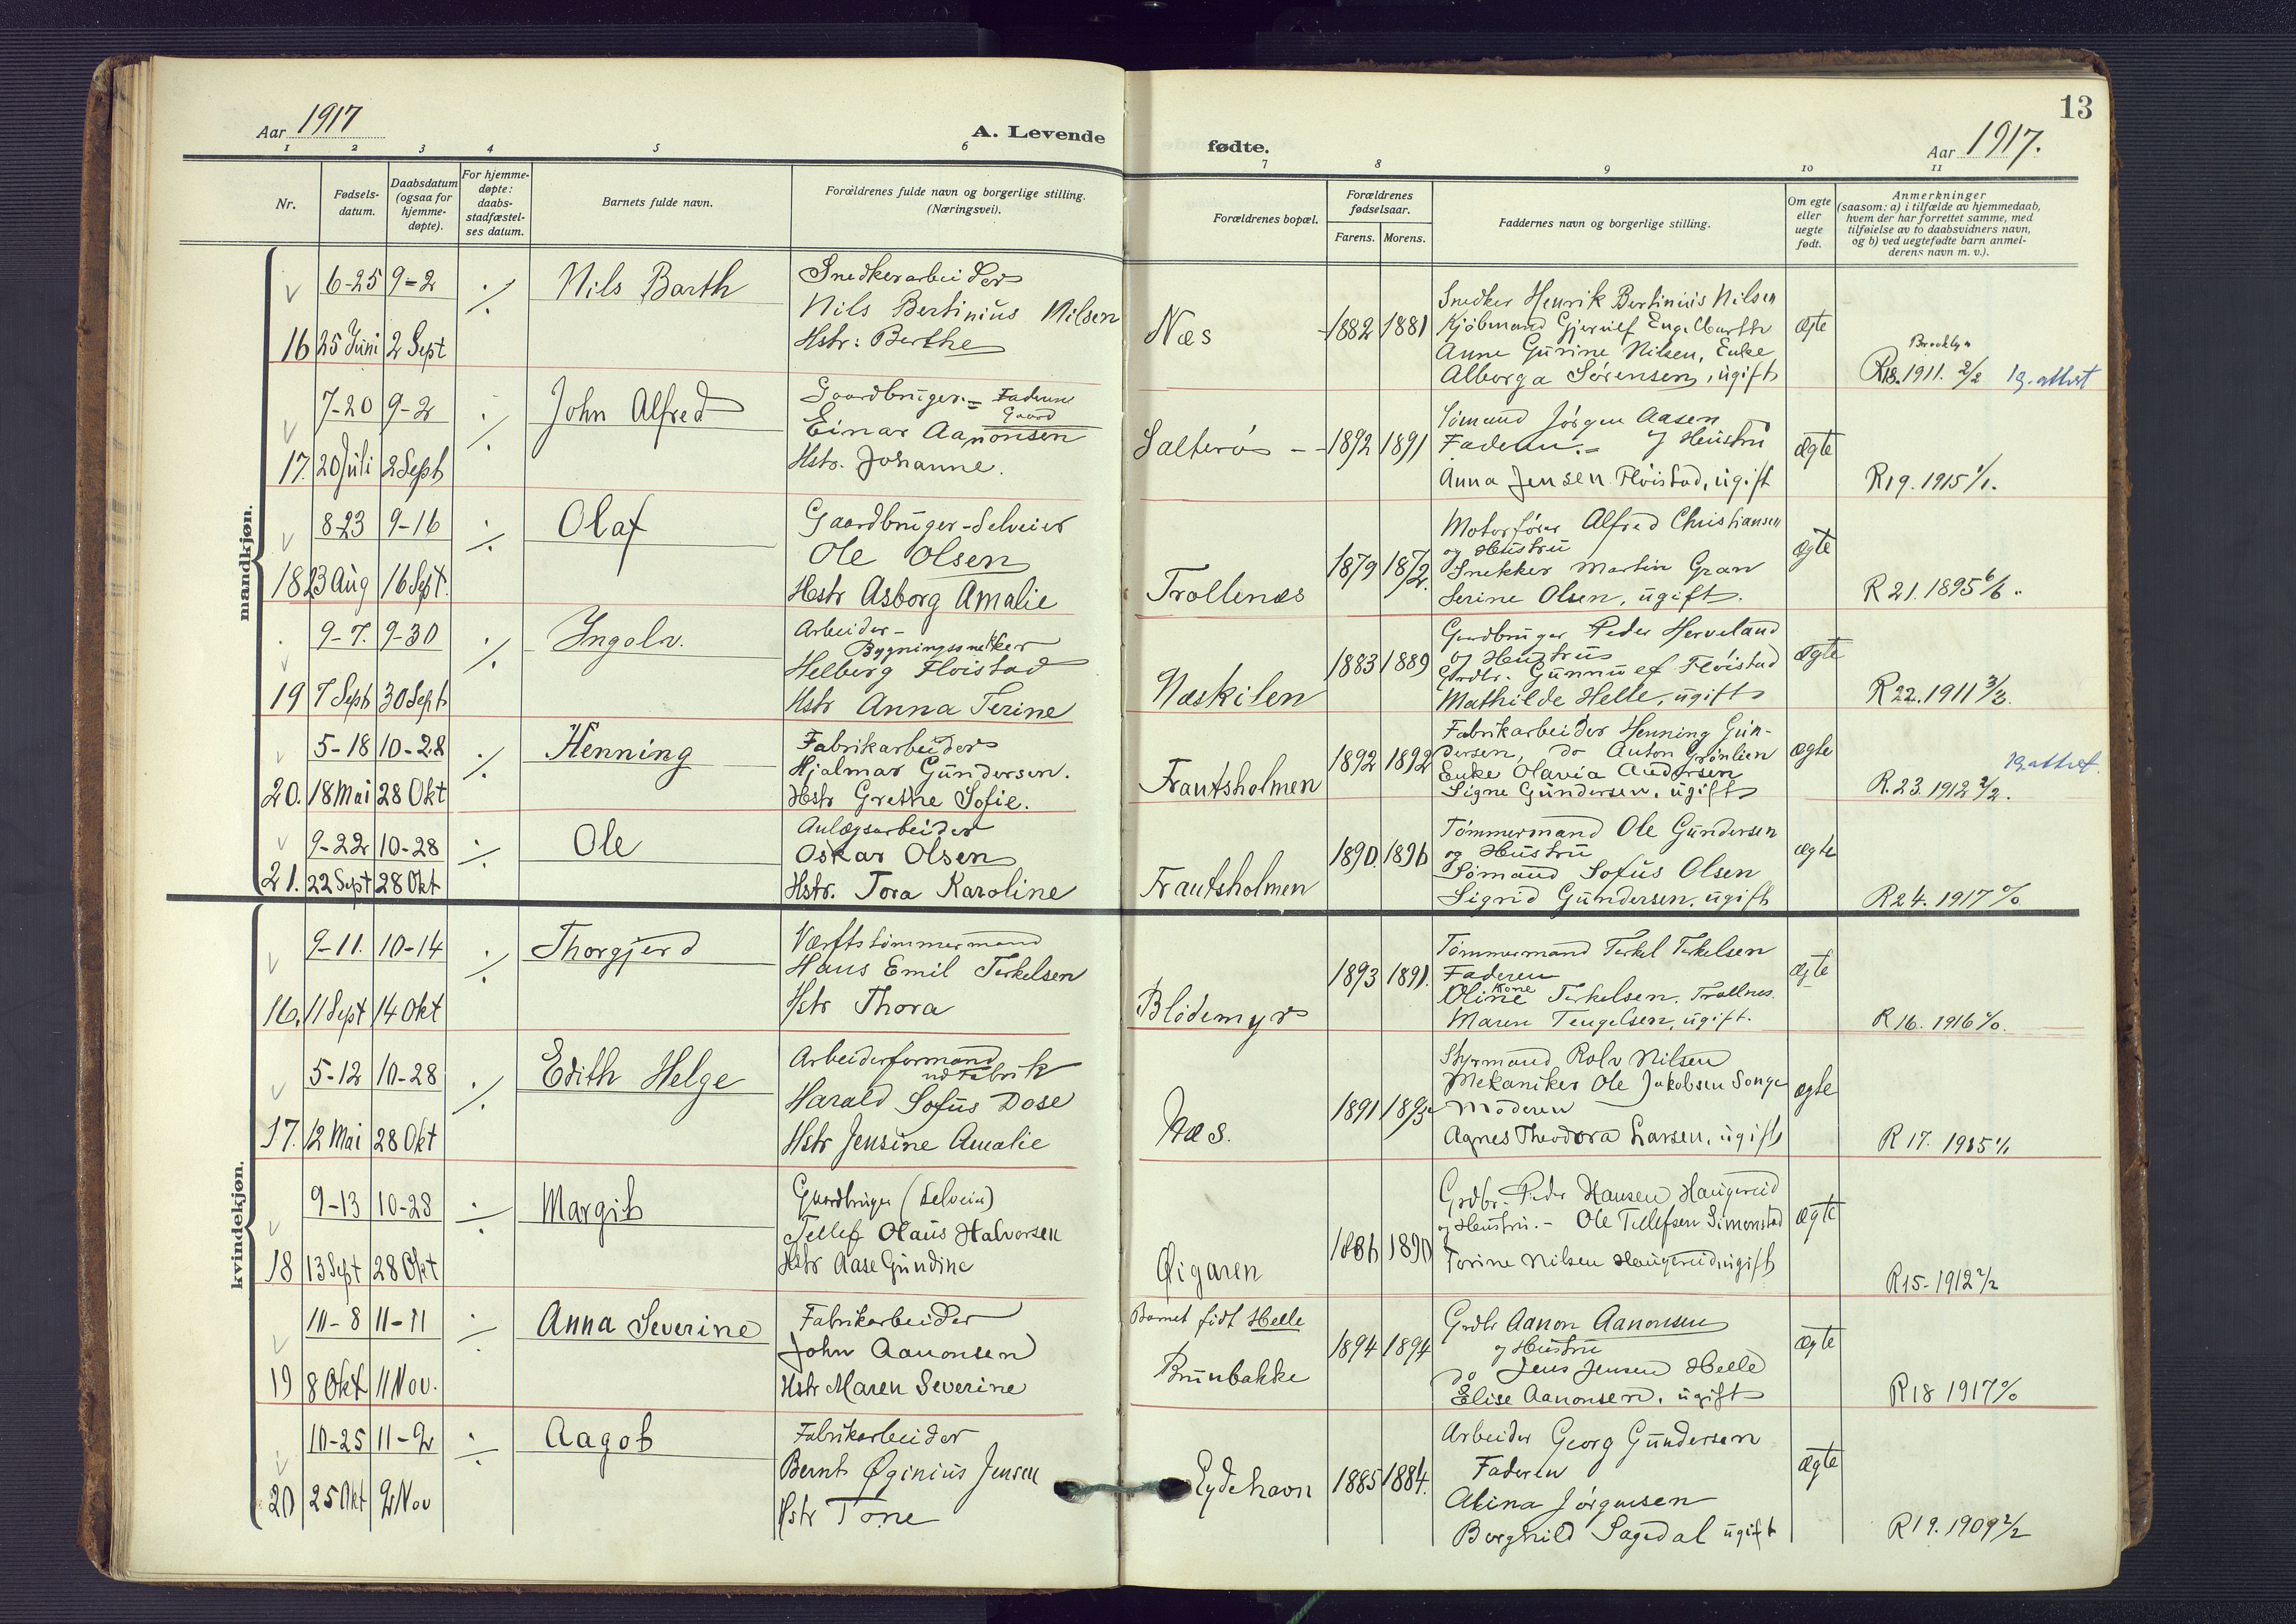 Aar 1917
A. Levende
fødte.
Aar 1917.
13
1 2 3 4 5 6 7 8 9 10 11
Nr.
Fødsels-
datum.
Daabsdatum
(ogsaa for
hjemme-
døpte).
For hjemme-
døpte:
daabs-
stadfæstel-
ses datum.
Barnets fulde navn.
Forældrenes fulde navn og borgerlige stilling.
(Næringsvei).
Forældrenes bopæl.
Forældrenes
fødselsaar.
Farens. Morens.
Faddernes navn og borgerlige stilling.
Om egte
eller
uegte
født.
Anmerkninger
(saasom: a) i tilfælde av hjemmedaab,
hvem der har forrettet samme, med
tilføielse av to daabsvidners navn,
og b) ved uegtefødte barn anmel-
derens navn m. v.).
mandkjøn.
6-25 9-2 Nils Barth
16 25 Juni 2 Sept
Snedkerarbeider
Nils Bertinius Nilsen
Hstr: Berthe
Næs 1882 1881
Snedker Henrik Bertinius Nilsen
Kjøbmand Gjerulf Engelbarth
Anne Gurine Nilsen, Enke
Alborga Sørensen, ugift
Ægte
Brooklyn
R18. 1911. 2/2
7-20 9-2 John Alfred
17. 20 Juli 2 Sept
Gaardbruger = Faderens
Gaard
Einar Aanonsen
Hstr. Johanne.
Salterøs 1892 1891
Sømand Jørgen Aasen
Faderen. og Hustru
Anna Jensen Fløistad, ugift
Ægte
R19. 1915 1/1.
8-23 9-16 Olaf
18 23 Aug 16 Sept.
Gaardbruger-Selveier
Ole Olsen
Hstr Asborg Amalie
Trollenæs 1879 1872.
Motorfører Alfred Christiansen
og Hustru
Snekker Martin Gran
Serine Olsen, ugift.
Ægte
R 21. 1895 6/6.
9-7. 9-30 Ingolv.
19 7 Sept 30 Sept
Arbeider-
Bygningssnekker
Helberg Fløistad
Hstr Anna Terine
Næskilen 1883 1889
Gardbruger Peder Herveland
og Hustru
Grdbr. Gunnulf Fløistad
Mathilde Helle, ugift
Ægte
R22. 1911 3/3.
5-18 10-28 Henning
20. 18 Mai 28 Okt
Fabrikarbeider
Hjalmar Gundersen.
Hstr Grethe Sofie.
Frantsholmen 1892 1892
Fabrikarbeider Henning Gun-
dersen, do Anton Grønlien
Enke Olavia Andersen
Signe Gundersen, ugift
Ægte
R. 23. 1912 2/2.
9-22 10-28 Ole
21. 22 Sept 28 Okt
Anlægsarbeider
Oskar Olsen
Hstr. Tora Karoline
Frantsholmen 1890. 1896
Tømmermand Ole Gundersen
og Hustru
Sømand Sofus Olsen
Sigrid Gundersen. ugift
ægte
R24. 1917 0/0
kvindekjøn.
9-11. 10-14 Thorgjerd
16. 11 Sept 14 Okt
Værftstømmermand
Hans Emil Terkelsen
Hstr Thora
Blødemyr 1893 1891.
Tømmermand Terkel Terkelsen
Faderen
Kone
Oline Terkelsen. Trollnes.
Maren Tengelsen, ugift.
Ægte
R 16. 1916 0/0.
5-12 10-28 Edith Helge
17. 12 Mai 28 Okt
Arbeiderformand
ved Fabrik
Harald Sofus Dose
Hstr Jensine Amalie
Næs. 1891 1893
Styrmand Rolv Nilsen
Mekaniker Ole Jakobsen Songe
Moderen
Agnes Theodora Larsen, ugift
Ægte
R 17. 1915 1/1
9-13 10-28 Margit
18 13 Sept 28 Okt
Gaardbruger (selveier)
Tellef Olaus Halvorsen
Hstr Aase Gundine
Øigaren 1886 1890
Grdbr. Peder Hansen Haugereid
og Hustru. - Ole Tellefsen Simonstad
Torine Nilsen Haugereid ugift
Ægte
R15- 1912 2/2
10-8 11-11 Anna Severine
19 8 Okt 11 Nov.
Fabrikarbeider
John Aanonsen
Hstr Maren Severine
Barnet født Helle
Brunbakke 1894 1894
Grdbr Aanon Aanonsen
og Hustru
do Jens Jensen Helle
Elise Aanonsen. ugift
ægte
R18 1917 0/0
10-25 11-9 Aagot
20 25 Okt 9 Nov
Fabrikarbeider
Bernt Øginius Jensen
Hstr Tone
Eydehavn 1885 1884.
Arbeider Georg Gundersen
Faderen
Alina Jørgensen
Borghild Sagedal ugift
Ægte
R19. 1909 2/2